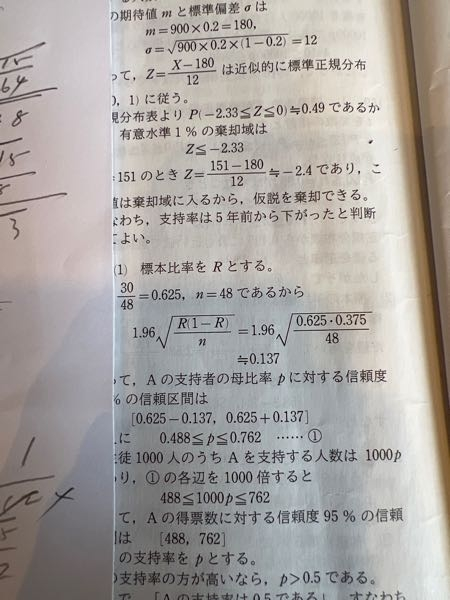 の期待値 m と標準偏差 σ は
m=900×0.2=180,
σ=√(900×0.2×(1-0.2))=12
て, Z=(X-180)/12 は近似的に標準正規分布
0, 1) に従う。
規分布表より P(-2.33≦Z≦0)≒0.49 であるか
有意水準 1 % の棄却域は
Z≦-2.33
=151 のとき Z=(151-180)/12≒-2.4 であり, こ
値は棄却域に入るから, 仮説を棄却できる。
なわち, 支持率は 5 年前から下がったと判断
てよい。
(1) 標本比率を R とする。
30/48=0.625, n=48 であるから
1.96√(R(1-R)/n)=1.96√(0.625・0.375/48)
≒0.137
て, A の支持者の母比率 p に対する信頼度
% の信頼区間は
[0.625-0.137, 0.625+0.137]
に 0.488≦p≦0.762 …… ①
徒 1000 人のうち A を支持する人数は 1000p
り, ① の各辺を 1000 倍すると
488≦1000p≦762
て, A の得票数に対する信頼度 95 % の信頼
は [488, 762]
の支持率を p とする。
の支持率の方が高いなら, p>0.5 である。
で, 「A の支持率は 0.5 である」, すなわち